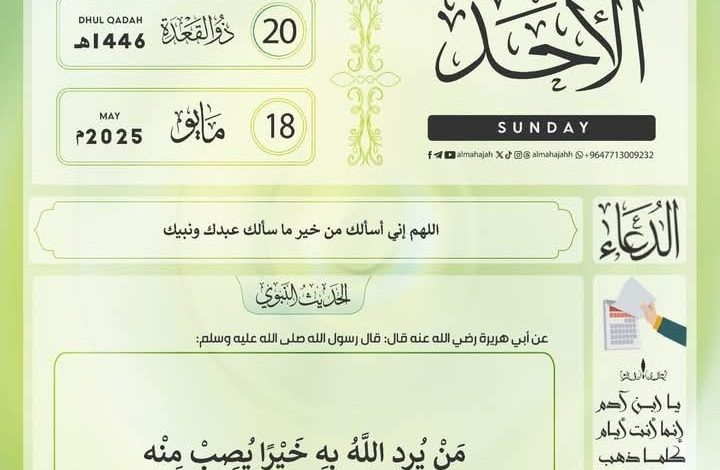 الأحد
SUNDAY
almahajah almahajahh +9647713009232
20 ذُو القَعْدَة DHUL QADAH 1446هـ
18 مَايو MAY 2025م
الدُعَاء
اللهم إني أسألك من خير ما سألك عبدك ونبيك
الحَدِيثُ النَّبَوِي
عن أبي هريرة رضي الله عنه قال: قال رسول الله صلى الله عليه وسلم:
مَنْ يُرِد اللَّهُ بِهِ خَيْرًا يُصِبْ مِنْه
يا ابن آدم
إنما أنت أيام
كلما ذهب